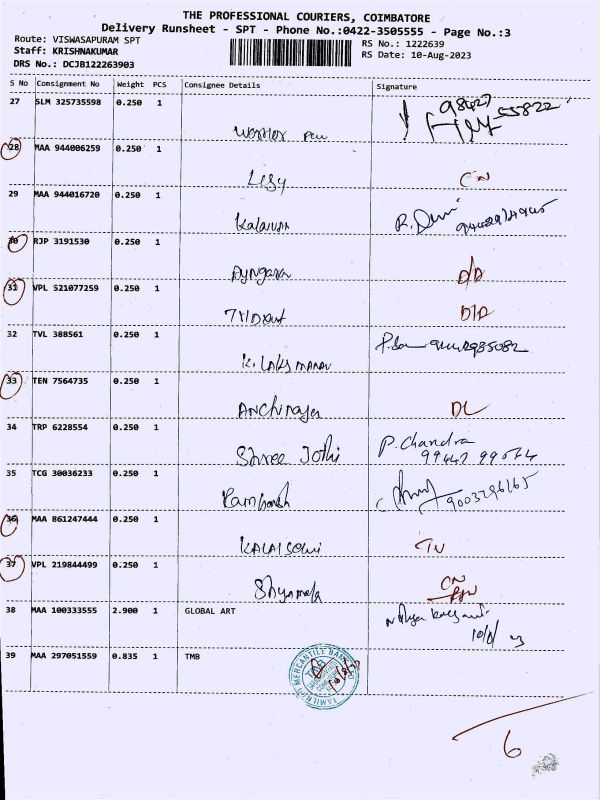 THE PROFESSIONAL COURIERS, COIMBATORE
Delivery Runsheet - SPT - Phone No.:0422-3505555 - Page No.:3
Route: VISWASAPURAM SPT
RS No.: 1222639
Staff: KRISHNAKUMAR
RS Date: 10-Aug-2023
DRS No.: DCJB122263903
S No Consignment No Weight PCS Consignee Details Signature
27 SLM 325735598 0.250 1
98427 55822
28 MAA 944006259 0.250 1
CN
29 MAA 944016720 0.250 1
R. Devi
30 RJP 3191530 0.250 1
Ayngaran D/D
31 VPL 521077259 0.250 1
D/D
32 TVL 388561 0.250 1
9442985082
K. LAKSMANAN
33 TEN 7564735 0.250 1
DL
34 TRP 6228554 0.250 1
Shree Jothi P. Chandra
35 TCG 30036233 0.250 1
9003296165
36 MAA 861247444 0.250 1
KALAI SELVI
37 VPL 219844499 0.250 1
Shyamala CN
38 MAA 100333555 2.900 1 GLOBAL ART
39 MAA 297051559 0.835 1 TMB
6